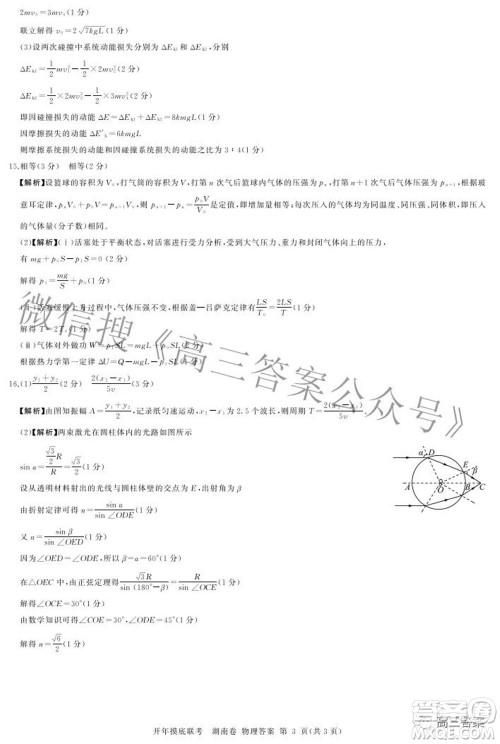 2mv₂=3mv₃(1分)
联立解得 v₀=2√(7kgL)(1分)
(3)设两次碰撞中系统动能损失分别为 ΔE_k1 和 ΔE_k2,
(2分)
(2分)
即因碰撞损失的动能 ΔE=ΔE_k1+ΔE_k2=8kmgL(1分)
因摩擦损失的动能 ΔE'_k=6kmgL
则摩擦损失的动能和因碰撞损失的动能之比为 3:4(1分)
15.相等(3分) 相等(2分)
【解析】设篮球的容积为 V₀,打气筒的容积为 V,打第 n 次气后篮球内气体的压强为 pₙ,打第 n+1 次气后气体压强为 pₙ₊₁,根据玻
意耳定律,pₙV₀+p₀V=pₙ₊₁V₀,则 pₙ₊₁-pₙ=p₀V/V₀(定值),即每次压入的气体均为同温度、同压强、同体积,即压入
的气体量(分子数)相同。
(2)【解析】(ⅰ)活塞处于平衡状态,对活塞进行受力分析可知,受到大气压力、重力和封闭气体向上的压力,
有 mg+p₀S-p₁S=0(2分)
解得 p₁=mg/S+p₀(1分)
(ⅱ)活塞缓慢上升过程中,气体压强不变,根据盖—吕萨克定律有 LS/T₀=2LS/T(1分)
解得 T=2T₀(1分)
(ⅲ)气体对外做功 W=p₁SL=mgL+p₀SL(2分)
根据热力学第一定律 ΔU=Q-mgL-p₀SL(1分)
16.(1)(y₁+y₂)/2(2分) 2(x₂-x₁)/5v(3分)
【解析】由图知振幅 A=(y₁+y₂)/2,记录纸匀速运动,x₂-x₁ 为 2.5 个波长,则周期 T=2(x₂-x₁)/5v
(2)【解析】两束激光在圆柱体内的光路如图所示
sin α=(√3/2 R)/R=√3/2(1分)
设从透明材料射出的光线与圆柱体壁的交点为 E,出射角为 β
由折射定律可得 n=sin α/sin∠ODE(1分)
又 n=sin β/sin∠OED(1分)
因为∠OED=∠ODE,β=α=60°(1分)
在△OEC 中,由正弦定理得 √3R/sin(180°-β)=R/sin∠OCE(1分)
解得∠OCE=30°(1分)
由数学知识可得∠COE=30°,∠ODE=45°(1分)
解得 n=√6/2(1分)
α D
E
β
A O B C
微信搜《高三答案公众号》
开年摸底联考 湖南卷 物理答案 第 3 页(共 3 页)
高三答案